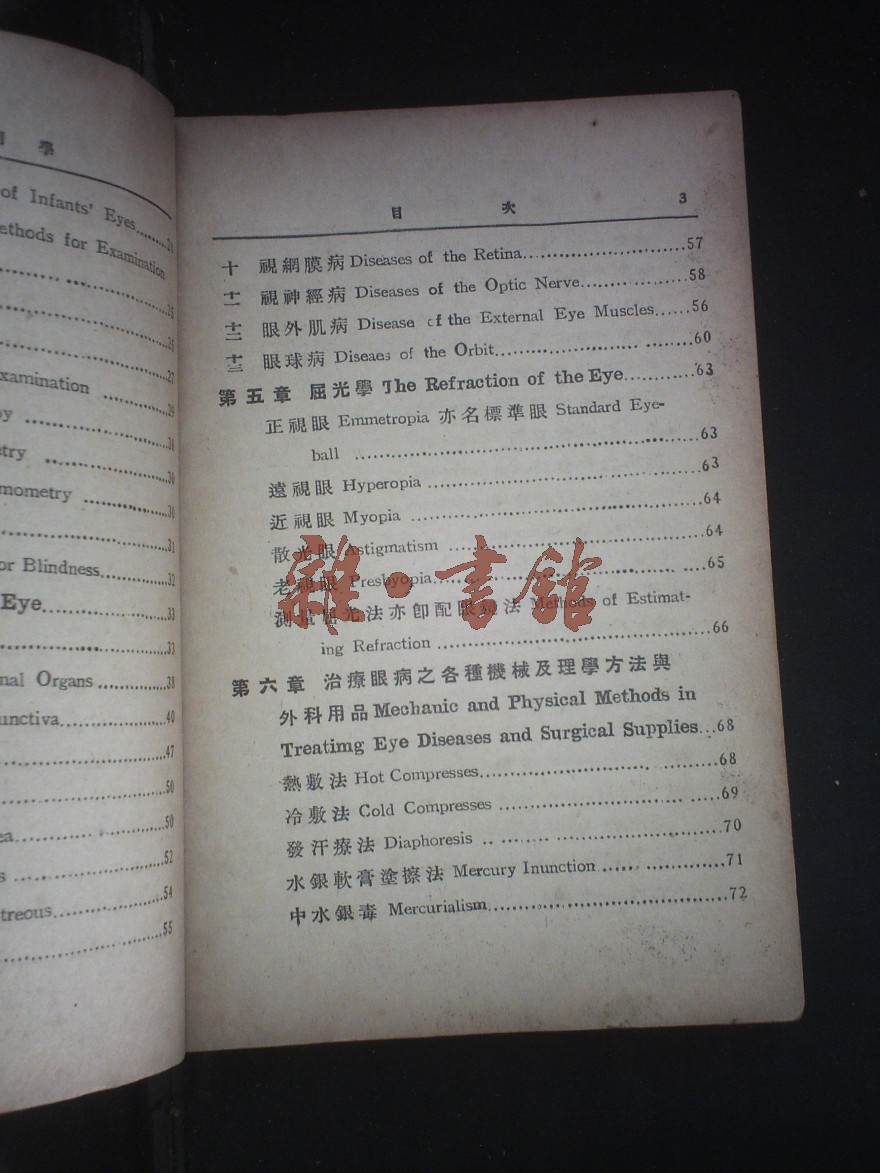 學
of Infants' Eyes........24
ethods for Examination
25
26
27
xamination ........29
try
mometry ........30
31
or Blindness........32
Eye........33
33
nal Organs ........38
unctiva........40
47
50
50
52
treous........54
55
目 次 3
十 視網膜病 Diseases of the Retina........57
十一 視神經病 Diseases of the Optic Nerve........58
十二 眼外肌病 Disease of the External Eye Muscles......56
十三 眼球病 Diseaes of the Orbit........60
第五章 屈光學 The Refraction of the Eye........63
正視眼 Emmetropia 亦名標準眼 Standard Eye-
ball ........63
遠視眼 Hyperopia ........63
近視眼 Myopia ........64
散光眼 Astigmatism ........64
老視眼 Presbyopia........65
測量屈光法亦卽配眼鏡法 Methods of Estimat-
ing Refraction ........66
第六章 治療眼病之各種機械及理學方法與
外科用品 Mechanic and Physical Methods in
Treatimg Eye Diseases and Surgical Supplies...68
熱敷法 Hot Compresses........68
冷敷法 Cold Compresses ........69
發汗療法 Diaphoresis ........70
水銀軟膏塗擦法 Mercury Inunction ........71
中水銀毒 Mercurialism........72
雜·書館